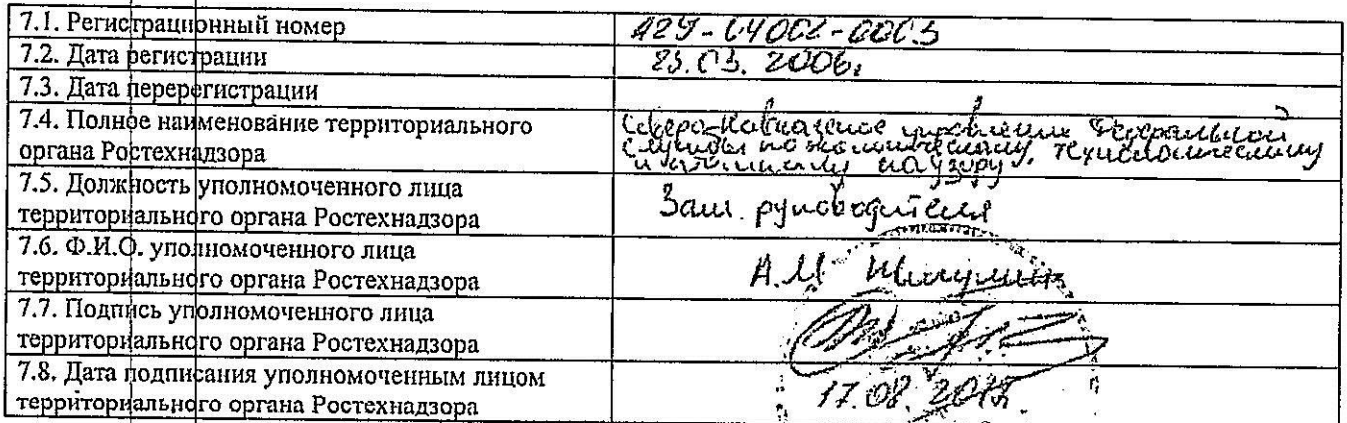 7.1. Регистрационный номер
А29-04002-0003
7.2. Дата регистрации
23.03.2006г
7.3. Дата перерегистрации
7.4. Полное наименование территориального
органа Ростехнадзора
Северо-Кавказское управление Федеральной
службы по экологическому, технологическому
и атомному надзору
7.5. Должность уполномоченного лица
территориального органа Ростехнадзора
Зам. руководителя
7.6. Ф.И.О. уполномоченного лица
территориального органа Ростехнадзора
А.М.
7.7. Подпись уполномоченного лица
территориального органа Ростехнадзора
7.8. Дата подписания уполномоченным лицом
территориального органа Ростехнадзора
17.08.2012